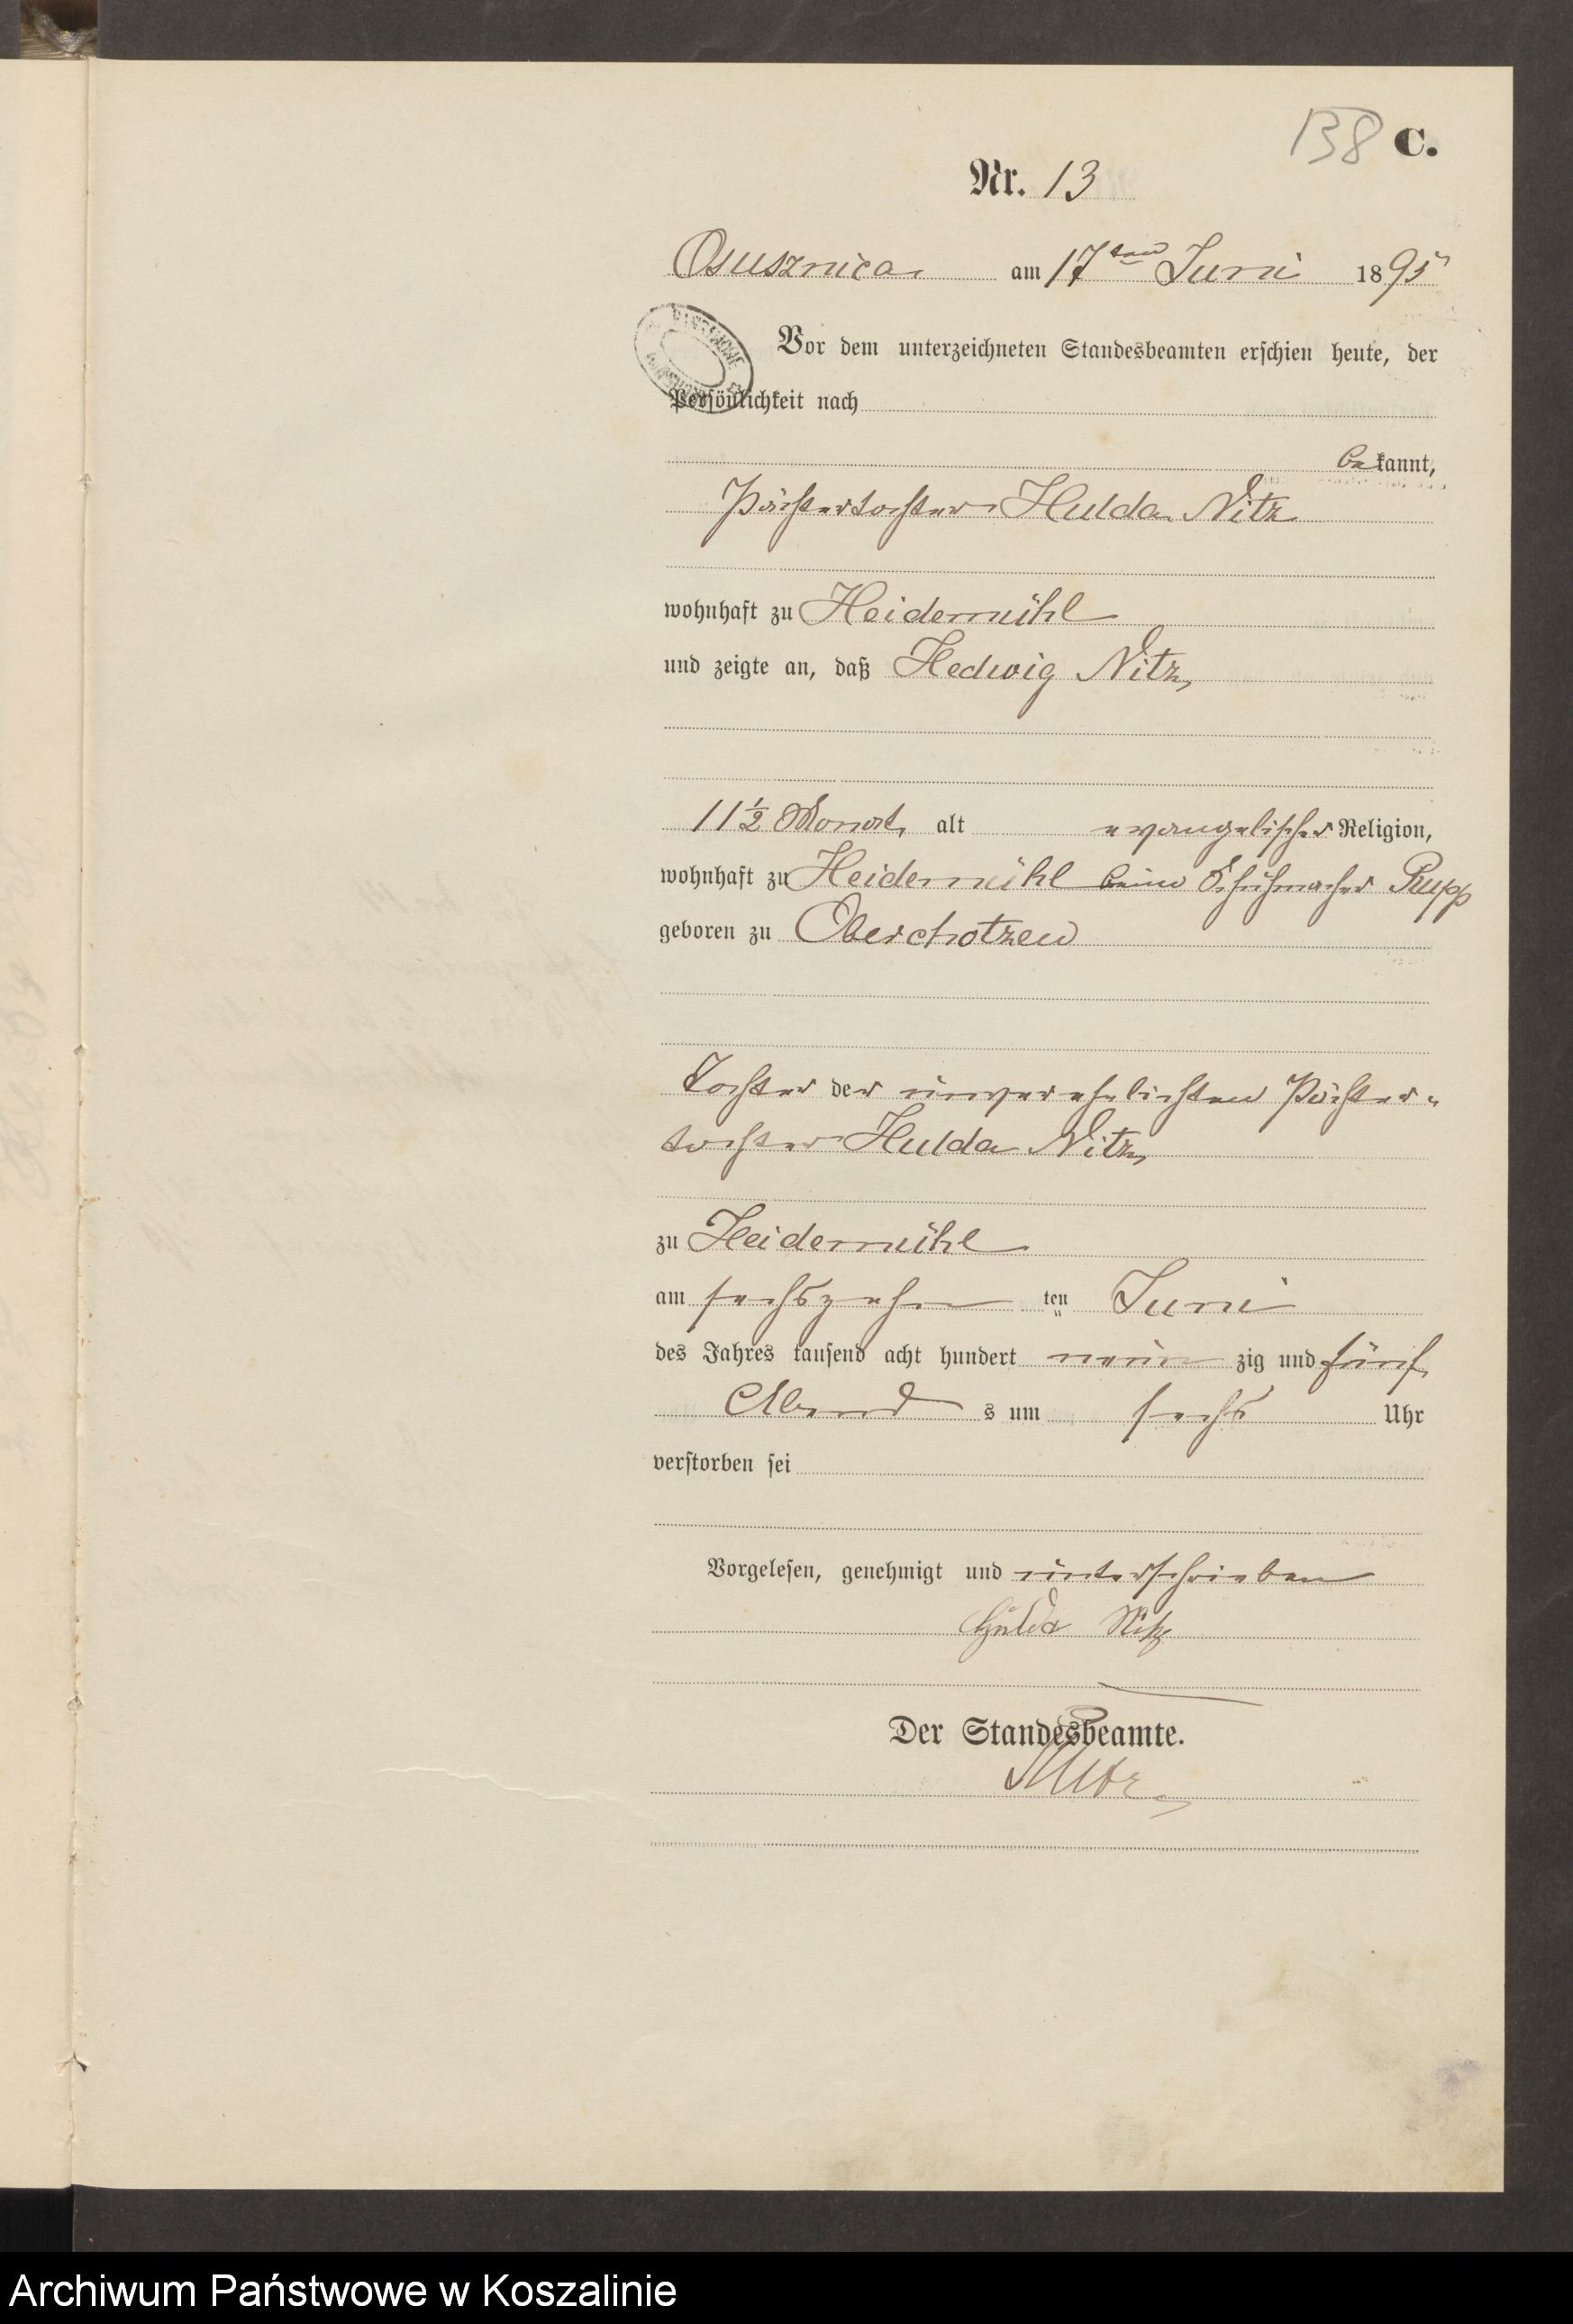 138 C.
Nr. 13
Osusznica am 17ten Juni 1895
Vor dem unterzeichneten Standesbeamten erschien heute, der
Persönlichkeit nach
bekannt,
Pächtertochter Hulda Nitz
wohnhaft zu Heidemühl
und zeigte an, daß Hedwig Nitz,
11½ Monat, alt evangelischer Religion,
wohnhaft zu Heidemühl beim Schuhmacher Rupp
geboren zu Oberchotzen
Tochter der unverehelichten Pächter-
tochter Hulda Nitz,
zu Heidemühl
am sechszehn ten Juni
des Jahres tausend acht hundert neun zig und fünf
Abend s um sechs Uhr
verstorben sei
Vorgelesen, genehmigt und unterschrieben
Hulda Nitz
Der Standesbeamte.
Archiwum Państwowe w Koszalinie